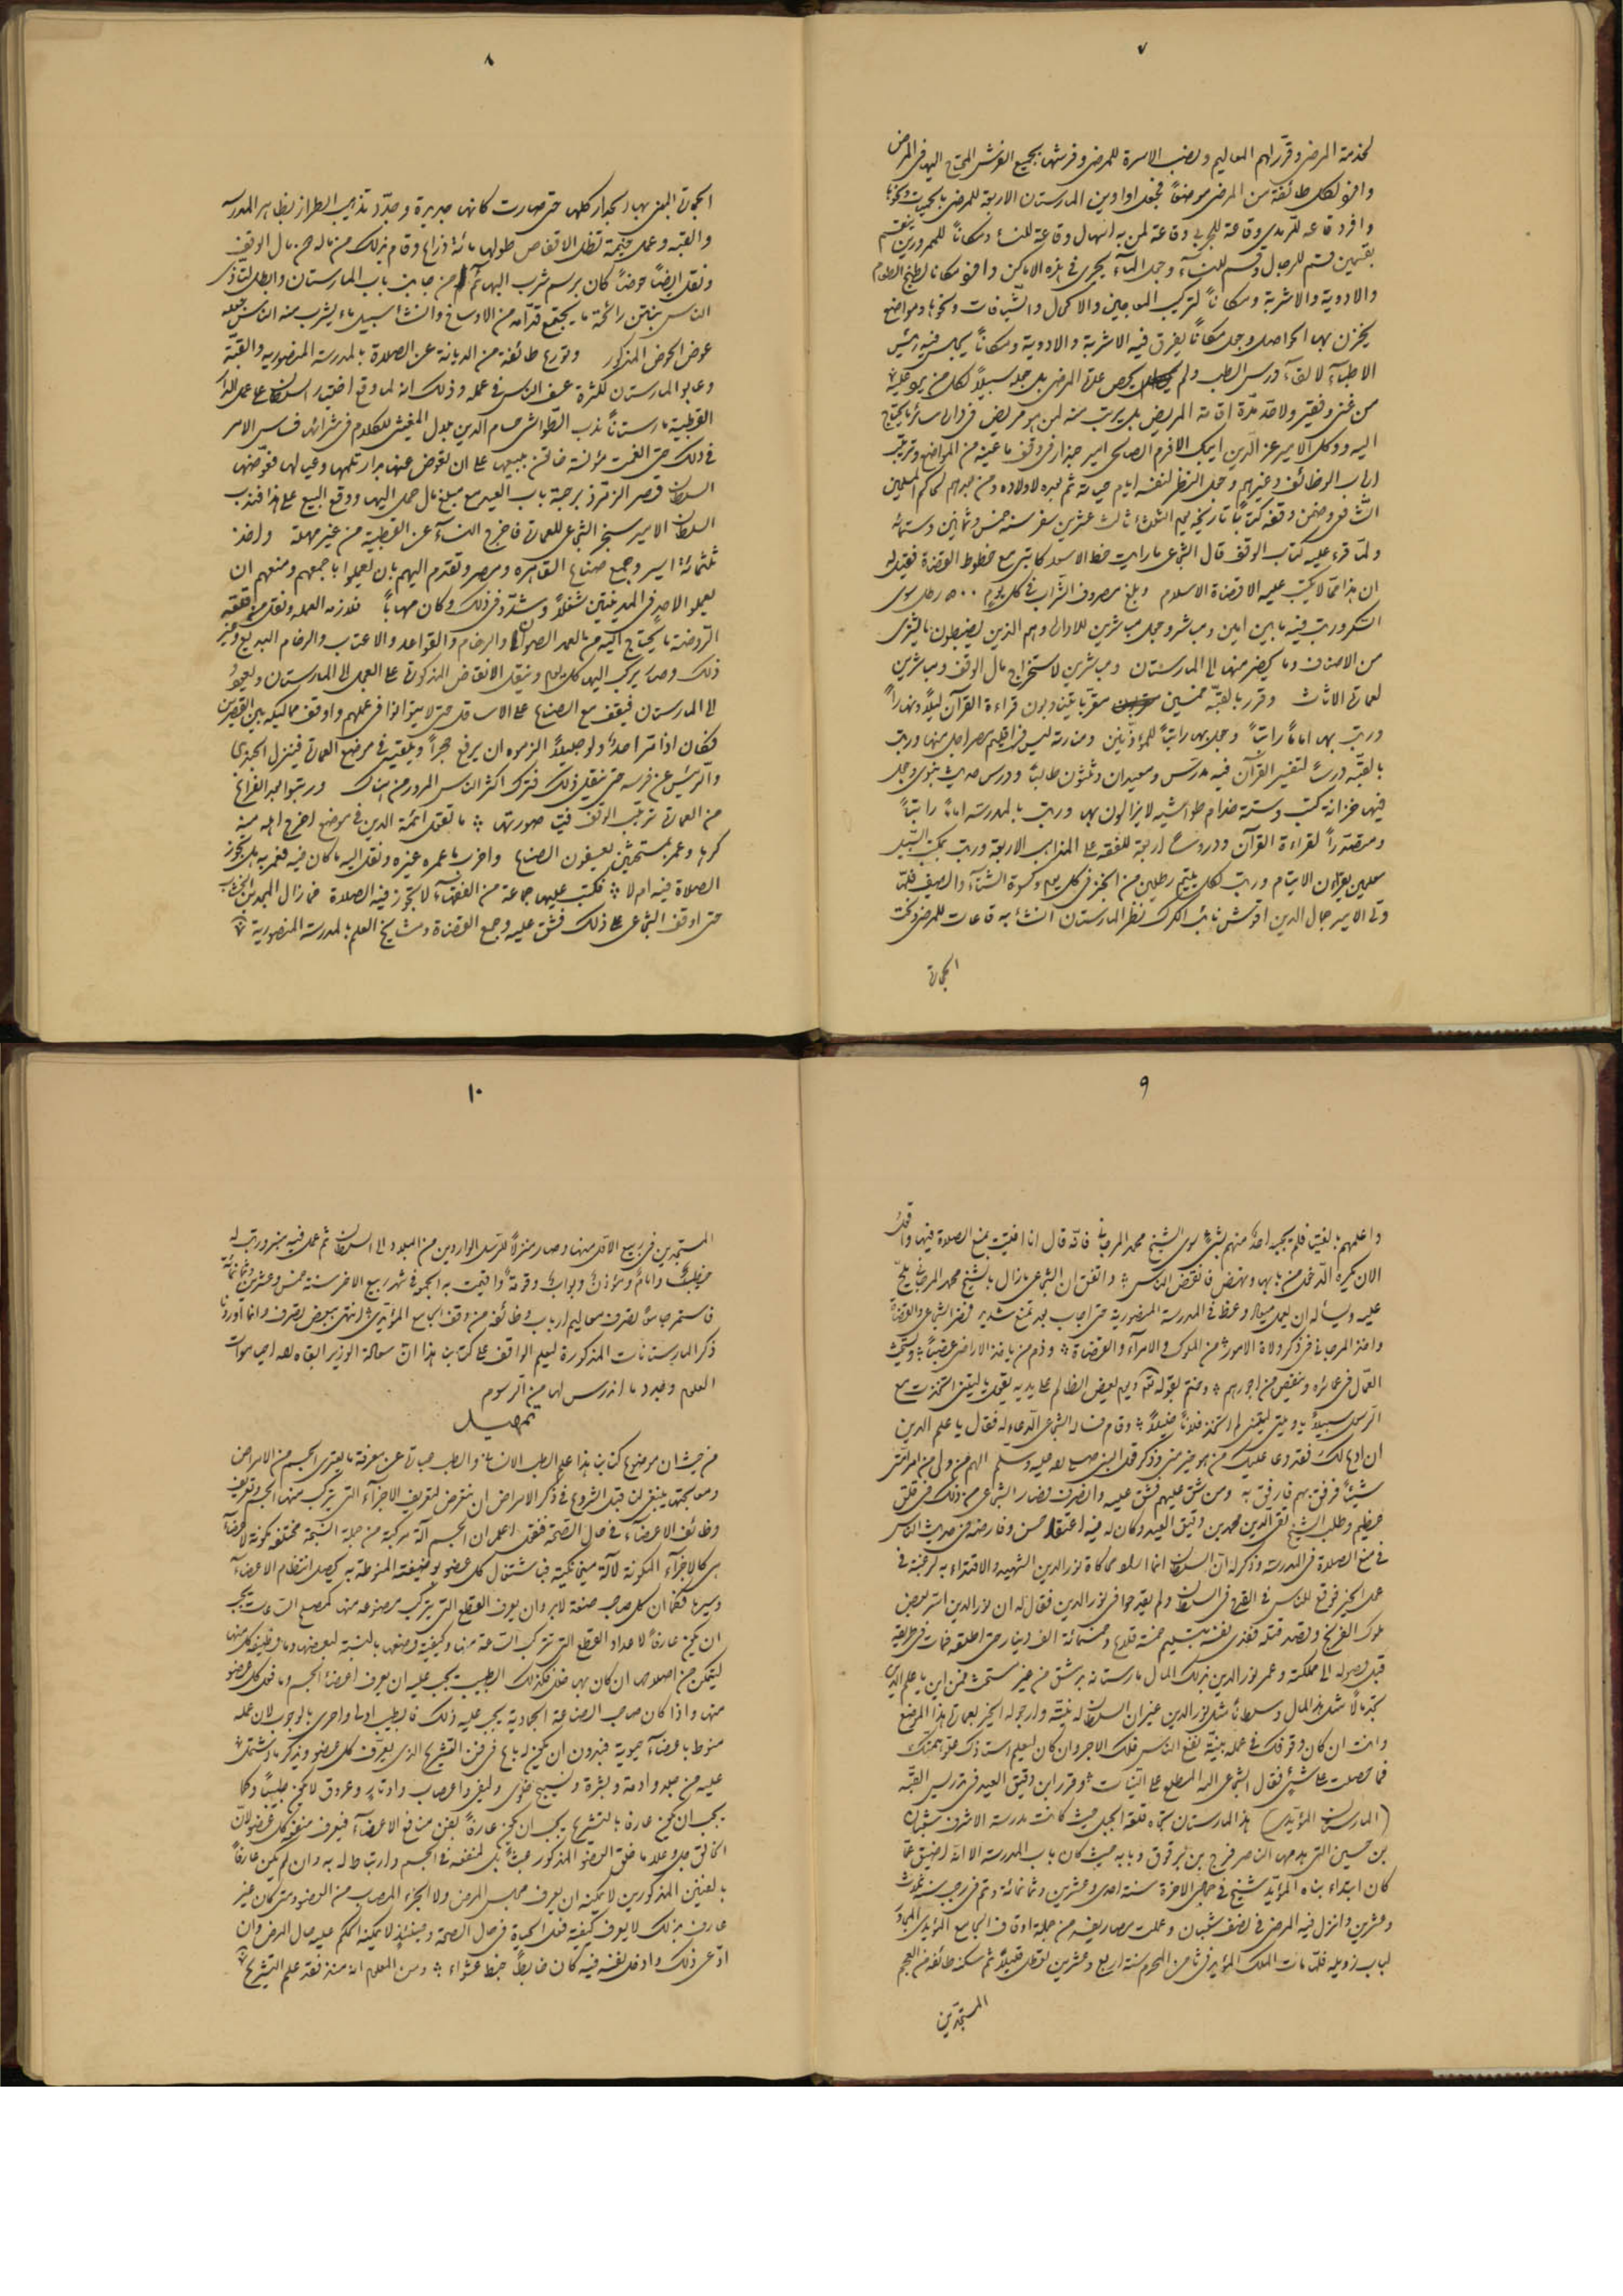 ٧
لخدمة المرضى وقرر لهم المعاليم ونصب الاسرة للمرضى وفرشها بجميع الفرش المحتاج اليه فى المرض
وافرد لكل طائفة من المرضى موضعاً فجعل اواوين المارستان الاربعة للمرضى بالحميات ونحوها
وافرد قاعه للرمدى وقاعة للجرحى وقاعة لمن به اسهال وقاعة للنساء ومكاناً للمبرودين ينقسم
بقسمين قسم للرجال وقسم للنسآء وجعل المآء يجرى فى هذه الاماكن وافرد مكانا لطبخ الطعام
والادوية والاشربة ومكاناً لتركيب المعاجين والاكحال والشيافات ونحوها ومواضع
يخزن بها الحواصل وجعل مكاناً يفرق فيه الاشربة والادوية ومكاناً يجلس فيه رئيس
الاطبآء لالقآء درس الطب ولم يحص عدّة المرضى بل جعله سبيلاً لكل من يرد عليه
من غنى وفقير ولا حدّد مدّة اقامة المريض بل يرتب منه لمن هو مريض فى داره سائر ما يحتاج
اليه ووكل الامير عز الدين ايبك الافرم الصالحى امير جندار فى وقف ما عينه من المواضع وترتيب
ارباب الوظائف وغيرهم وجعل النظر لنفسه ايام حياته ثم بعده لاولاده ومن بعدهم لحاكم المسلمين
الشافعى وضمن وقفه كتاباً تاريخه يوم الثلثاء ثالث عشرين صفر سنه خمس وثمانين وستمائة
ولمّا قرء عليه كتاب الوقف قال الشجاعى ما رايت خط الاسعد كاتبى مع خطوط القضاة فقيل له
ان هذا ممّا لا يكتب عليه الا قضاة الاسلام وبلغ مصروف الشراب فى كل يوم ٥٠٠ رطل سوى
السكر ورتب فيه ما بين امين ومباشر وجعل مباشرين للاداره وهم الذين يضبطون ما يشترى
من الاصناف وما يحضر منها الى المارستان ومباشرين لاستخراج مال الوقف ومباشرين
لعمارة الاثاث وقرر بالقبّة خمسين مقرّياً يتناوبون قراءة القرآن ليلاً ونهاراً
ورتب بها اماماً راتباً وجعل بها راتباً للمؤذّنين ومنارته ليس فى اقليم مصر اجل منها ورتب
بالقبّة درساً لتفسير القرآن فيه مدرّس ومعيدان وثلثون طالباً ودرس حديث نبوى وجعل
فيها خزانة كتب وستة خدام طواشيه لا يزالون بها ورتب بالمدرسة اماماً راتباً
ومتصدّراً لقراءة القرآن ودروسا اربعة للفقه على المذاهب الاربعة ورتب بمكتب السبيل
معلمين يقرآن الايتام ورتب لكل يتيم رطلين من الخبز فى كل يوم وكسوة الشتآء والصيف فلمّا
ولى الامير جمال الدين اقوش نائب الكرك نظر المارستان انشأ به قاعات للمرضى ونحت
الحجارة
٨
الحجارة المبنى بها والجدار كلها حتى صارت كانها جديدة وجدّد تذهيب الطراز بظاهر المدرسه
والقبه وعمل خيمة تظل الاقفاص طولها مائة ذراع وقام بذلك من ماله دون مال الوقف
ونقل ايضاً حوضاً كان برسم شرب البهائم من جانب باب المارستان وابطله لتأذى
الناس بنتن رائحة ما يجتمع قدّامه من الاوساخ وانشأ سبيل ماء يشرب منه الناس جعله
عوض الحوض المذكور وتورع طائفة من الديانة عن الصلاة بالمدرسة المنصوريه والقبّة
وعابوا المارستان لكثرة عسف الناس فى عمله وذلك انه لما وقع اختيار السلطان على عمل الدار
القطبية مارستاناً ندب الطواشى حسام الدين بلال المغيثى للكلام فى شرائها فساس الامر
فى ذلك حتى انعمت مؤنسة خاتون ببيعها على ان تعوض عنها بدار تلمها وعيالها فعوضها
السلطان قصر الزمرّد برحبة باب العيد مع مبلغ مال حمل اليها ووقع البيع على هذا فندب
السلطان الامير سنجر الشجاعى للعمارة فاخرج النسآء عن القطبية من غير مهلة واخذ
ثلثمائة اسير وجمع صناع القاهره ومصر وتقدم اليهم بان يعملوا باجمعهم ومنعهم ان
يعملوا لاحد فى المدينتين شغلاً وشدّد فى ذلك وكان مهاباً فلازموا العمل ونقل من قلعة
الروضة ما يحتاج اليه من العمد الصوان والرخام والقواعد والاعتاب والرخام البديع وغير
ذلك وصار يركب اليها كل يوم وينقل الانقاض المذكورة على العجل الى المارستان ويعود
الى المارستان فيقف مع الصناع على الاساقيل حتى لا يتوانوا فى عملهم واوقف مماليكه بين القصرين
فكان اذا مرّ احدٌ ولو جليلاً الزموه ان يرفع حجراً ويلقيه فى موضع العمارة فينزل الجندى
والرئيس عن فرسه حتى ينقل ذلك فترك اكثر الناس المرور من هناك ورتبوا بعد الفراغ
من العمارة ترتيب الوقف فتيا صورتها ما تقول ائمة الدين فى موضع اخرج اهله منه
كرها وعمر بمستحثين يعسفون الصناع واخرب ما عمره غيره ونقل اليه ما كان فيه فعمر به هل تجوز
الصلاة فيه ام لا فكتب عليها جماعة من الفقهآء لا تجوز فيه الصلاة فما زال المجد بن الخشاب
حتى اوقف الشجاعى على ذلك فشق عليه وجمع القضاة ومشايخ العلم بالمدرسه المنصورية
٩
واعلمهم بالفتيا فلم يجبه احدٌ منهم بشئ سوى الشيخ محمد المرجانى فانّه قال انا افتيت بمنع الصلاة فيها واقول
الان يكره الدّخول من بابها ونهض فانفض الناس واتفق ان الشجاعى مازال بالشيخ محمد المرجانى يلحّ
عليه ويسأله ان يعمل ميعاد وعظ فى المدرسة المنصورية حتى اجاب بعد تمنع شديد فحضر الشجاعى والقضاة
واخذ المرجانى فى ذكر ولاة الامور من الملوك والامرآء والقضاة وذم من ياخذ الاراضى غصباً ويستحث
العمّال فى عمائره وينقص من اجورهم وختم بقوله تع ويوم يعض الظالم على يديه يقول يا ليتنى اتخذت مع
الرسول سبيلاً يا ويلتى ليتنى لم اتخذ فلاناً خليلاً وقام فساله الشجاعى الدّعاء له فقال يا علم الدين
ان ادع لك فقد دعا عليك من هو خير منى وذكر قول النبى صلى الله عليه وسلم اللهم من ولى من امر امّتى
شيئاً فرفق بهم فارفق به ومن شق عليهم فشق عليه وانصرف فصار الشجاعى من ذلك فى قلق
عظيم وطلب الشيخ تقى الدين محمد بن دقيق العيد وكان له فيه اعتقاد حسن وفاوضه فى حديث الناس
فى منع الصلاة فى المدرسة وذكر له انّ السلطان انما اراد محاكاة نورالدين الشهيد والاقتداء به لرغبته فى
عمل الخير فوقع الناس فى القدح فى السلطان ولم يقدحوا فى نورالدين فقال له ان نورالدين اسر بعض
ملوك الفرنج وقصد قتله ففدى نفسه بتسليم خمسة قلاع وخمسمائة الف دينار حتى اطلقه فمات فى طريقه
قبل وصوله الى مملكته وعمر نورالدين بذلك المال مارستانه بدمشق من غير مستحث فمن اين يا علم الدين
تجد مالاً مثل هذا المال وسلطاناً مثل نورالدين غير ان السلطان له نيّته وارجو له الخير بعمارة هذا الموضع
وانت ان كان وقوفك فى عمله بنيّة نفع الناس فلك الاجر وان كان ليعلم استاذك علوّ همّتك
فما حصلت على شئ فقال الشجاعى الله المطلع على النيّات وقرر ابن دقيق العيد فى تدريس القبّه
(المارستان المؤيّدى) هذا المارستان تجاه قلعة الجبل حيث كانت مدرسة الاشرف شعبان
بن حسين التى هدمها الناصر فرج بن برقوق وبابه حيث كان باب المدرسه الا انّه اضيق عمّا
كان ابتداء بناه المؤيّد شيخ فى جمادى الاخرة سنة احدى وعشرين وثمانمائة وتم فى رجب سنه ثلاث
وعشرين وانزل فيه المرضى فى نصف شعبان وعملت مصاريفه من جملة اوقاف الجامع المؤيدى المجاور
لباب زويله فلمّا مات الملك المؤيد فى ثامن المحرم سنة اربع وعشرين تعطل قليلاً ثم سكنه طائفه من العجم
المستجدين
١٠
المستجدين فى ربيع الاوّل منها وصار منزلاً للرسل الواردين من البلاد الى السلطان ثم عمل فيه منبر ورتب له
خطيب وامام ومؤذن وبواب وقومة واقيمت به الجمعة فى شهر ربيع الاخر سنة خمس وعشرين وثمانمائة
فاستمر جامعاً تصرف معاليم ارباب وظائفه من وقف الجامع المؤيّدى انتهى ببعض تصرف وانما اوردنا
ذكر المارستانات المذكورة ليعلم الواقف على كتابنا هذا انّ سعادة الوزير ابقاه الله احيا موات
العلم وجدد ما اندرس لها من الرسوم
تمهيد
من حيث ان موضوع كتابنا هذا علم الطب الانسانى والطب عبارة عن معرفة ما يعترى الجسم من الامراض
ومعالجتها ينبغى لنا قبل الشروع فى ذكر الامراض ان نتعرض لتعريف الاجزآء التى يتركب منها الجسم وتعريف
وظائف الاعضآء فى حال الصّحة فنقول اعلم ان الجسم آلة مركبة من جملة انسجة مختلفة مكونة لاعضآء
هى كالاجزآء المكونة لآلة ميخانيكية فباشتغال كل عضو بوظيفته المنوطة به يحصل انتظام الاعضآء
وسيرها فكما ان كل صاحب صنعة لابد وان يعرف القطع التى يتركب مصنوعه منها كمصلح الساعات يجب
ان يكون عارفاً لاعداد القطع التى تتركب الساعة منها وكيفية وضعها بالنسبة لبعضها وما وظيفة كل منها
ليتمكن من اصلاحها ان كان بها خلل فكذلك الطبيب يجب عليه ان يعرف اعضاء الجسم وما فعل كل عضو
منها واذا كان صاحب الصناعة الجمادية يجب عليه ذلك فالطبيب اولى واحرى بالوجوب لان عمله
منوط باعضآء حيوية فبدون ان يكون له باع فى فن التشريح الذى يعرّف كل عضو ويذكر ما يشتمل
عليه من جلد وادمة وبشرة ونسيج خلوى وليفى واعصاب واوتار وعروق لا يكون طبيباً وكما
يجب ان يكون عارفا بالتشريح يجب ان يكون عارفاً بفن منافع الاعضآء فيعرف منفعة كل عضو لانّ
الخالق جل وعلا ما خلق العضو المذكور عبثاً بل لمنفعه فى الجسم وارتباط له به وان لم يكن عارفاً
بالفنين المذكورين لا يمكنه ان يعرف مجلس المرض ولا الجزء المصاب من العضو ومتى كان غير
عارف بذلك لا يعرف كيفية فعل الحياة فى حال الصحة وحينئذٍ لا يمكنه الحكم عليه حال المرض وان
ادّعى ذلك وادخل نفسه فيه كان خابطاً خبط عشواء ومن المعلوم انه منذ فقد علم التشريح